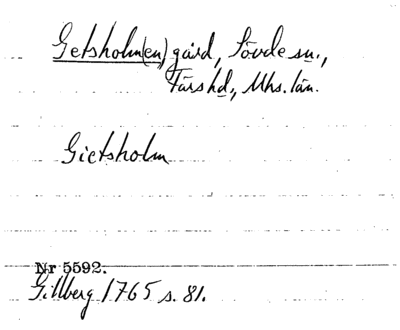 Getsholm(en), gård, Sövde sn.,
Färs hd., Mhs. län.
Gietsholm
Nr 5592.
Gillberg 1765 s. 81.